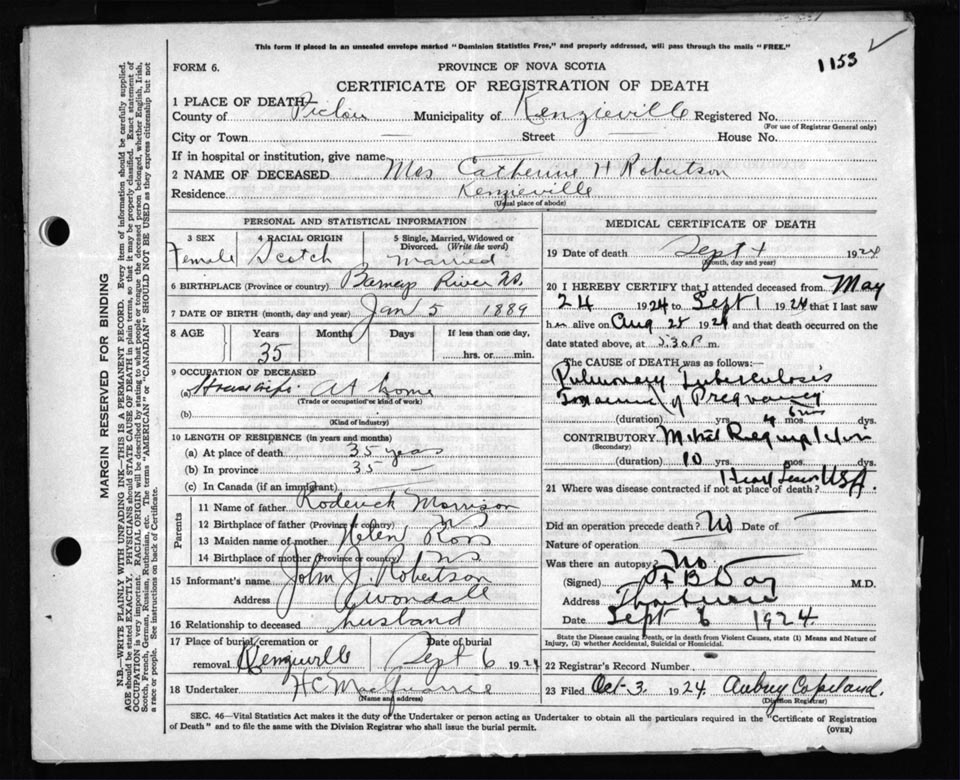 This form if placed in an unsealed envelope marked "Dominion Statistics Free," and properly addressed, will pass through the mails "FREE."
1153
FORM 6.
PROVINCE OF NOVA SCOTIA
CERTIFICATE OF REGISTRATION OF DEATH
1 PLACE OF DEATH—
County of Pictou Municipality of Kenzieville Registered No.
(For use of Registrar General only)
City or Town — Street — House No.
If in hospital or institution, give name
2 NAME OF DECEASED Mrs Catherine H Robertson
Residence Kenzieville
(Usual place of abode)
PERSONAL AND STATISTICAL INFORMATION
3 SEX Female
4 RACIAL ORIGIN Scotch
5 Single, Married, Widowed or Divorced. (Write the word) Married
6 BIRTHPLACE (Province or country) Barneys River N.S.
7 DATE OF BIRTH (month, day and year) Jan 5 1889
8 AGE Years 35 Months Days If less than one day, hrs. or min.
9 OCCUPATION OF DECEASED
(a) Housewife. At home
(Trade or occupation or kind of work)
(b)
(Kind of industry)
10 LENGTH OF RESIDENCE (in years and months)
(a) At place of death 35 years
(b) In province 35 —
(c) In Canada (if an immigrant)
Parents
11 Name of father Roderick Morrison
12 Birthplace of father (Province or country) N S
13 Maiden name of mother Helen Ross
14 Birthplace of mother (Province or country) N S
15 Informant's name John J. Robertson
Address Avondale
16 Relationship to deceased husband
17 Place of burial, cremation or removal Kenzieville Date of burial Sept 6 1924
18 Undertaker H C
(Name and address)
MEDICAL CERTIFICATE OF DEATH
19 Date of death Sept 4 1924
(Month, day and year)
20 I HEREBY CERTIFY that I attended deceased from May
24 1924 to Sept 1 1924 that I last saw
h alive on Aug 1924 and that death occurred on
date stated above, at 2.30 P m.
The CAUSE OF DEATH was as follows:
Pulmonary Tuberculosis
of Pregnancy
(duration) yrs. mos. dys.
CONTRIBUTORY Mitral
(Secondary)
(duration) 10 yrs. mos. dys.
21 Where was disease contracted if not at place of death? U.S.A.
Did an operation precede death? No Date of —
Nature of operation
Was there an autopsy? No
(Signed) Day M.D.
Address
Date Sept 6 1924
State the Disease causing Death, or in death from Violent Causes, state (1) Means and Nature of Injury, (2) whether Accidental, Suicidal or Homicidal.
22 Registrar's Record Number
23 Filed Oct 3 1924. Aubrey Copeland.
(Division Registrar)
SEC. 46—Vital Statistics Act makes it the duty of the Undertaker or person acting as Undertaker to obtain all the particulars required in the "Certificate of Registration
of Death" and to file the same with the Division Registrar who shall issue the burial permit.
(OVER)
MARGIN RESERVED FOR BINDING
N.B.—WRITE PLAINLY WITH UNFADING INK—THIS IS A PERMANENT RECORD. Every item of information should be carefully supplied.
AGE should be stated EXACTLY. PHYSICIANS should STATE CAUSE OF DEATH in plain terms, so that it may be properly classified. Exact statement of
OCCUPATION is very important. RACIAL ORIGIN will be described by stating to what people or tongue the deceased person belonged, whether English, Irish,
Scotch, French, German, Russian, Ruthenian, etc. The terms "AMERICAN" or "CANADIAN" SHOULD NOT BE USED as they express citizenship but not
a race or people. See instructions on back of Certificate.